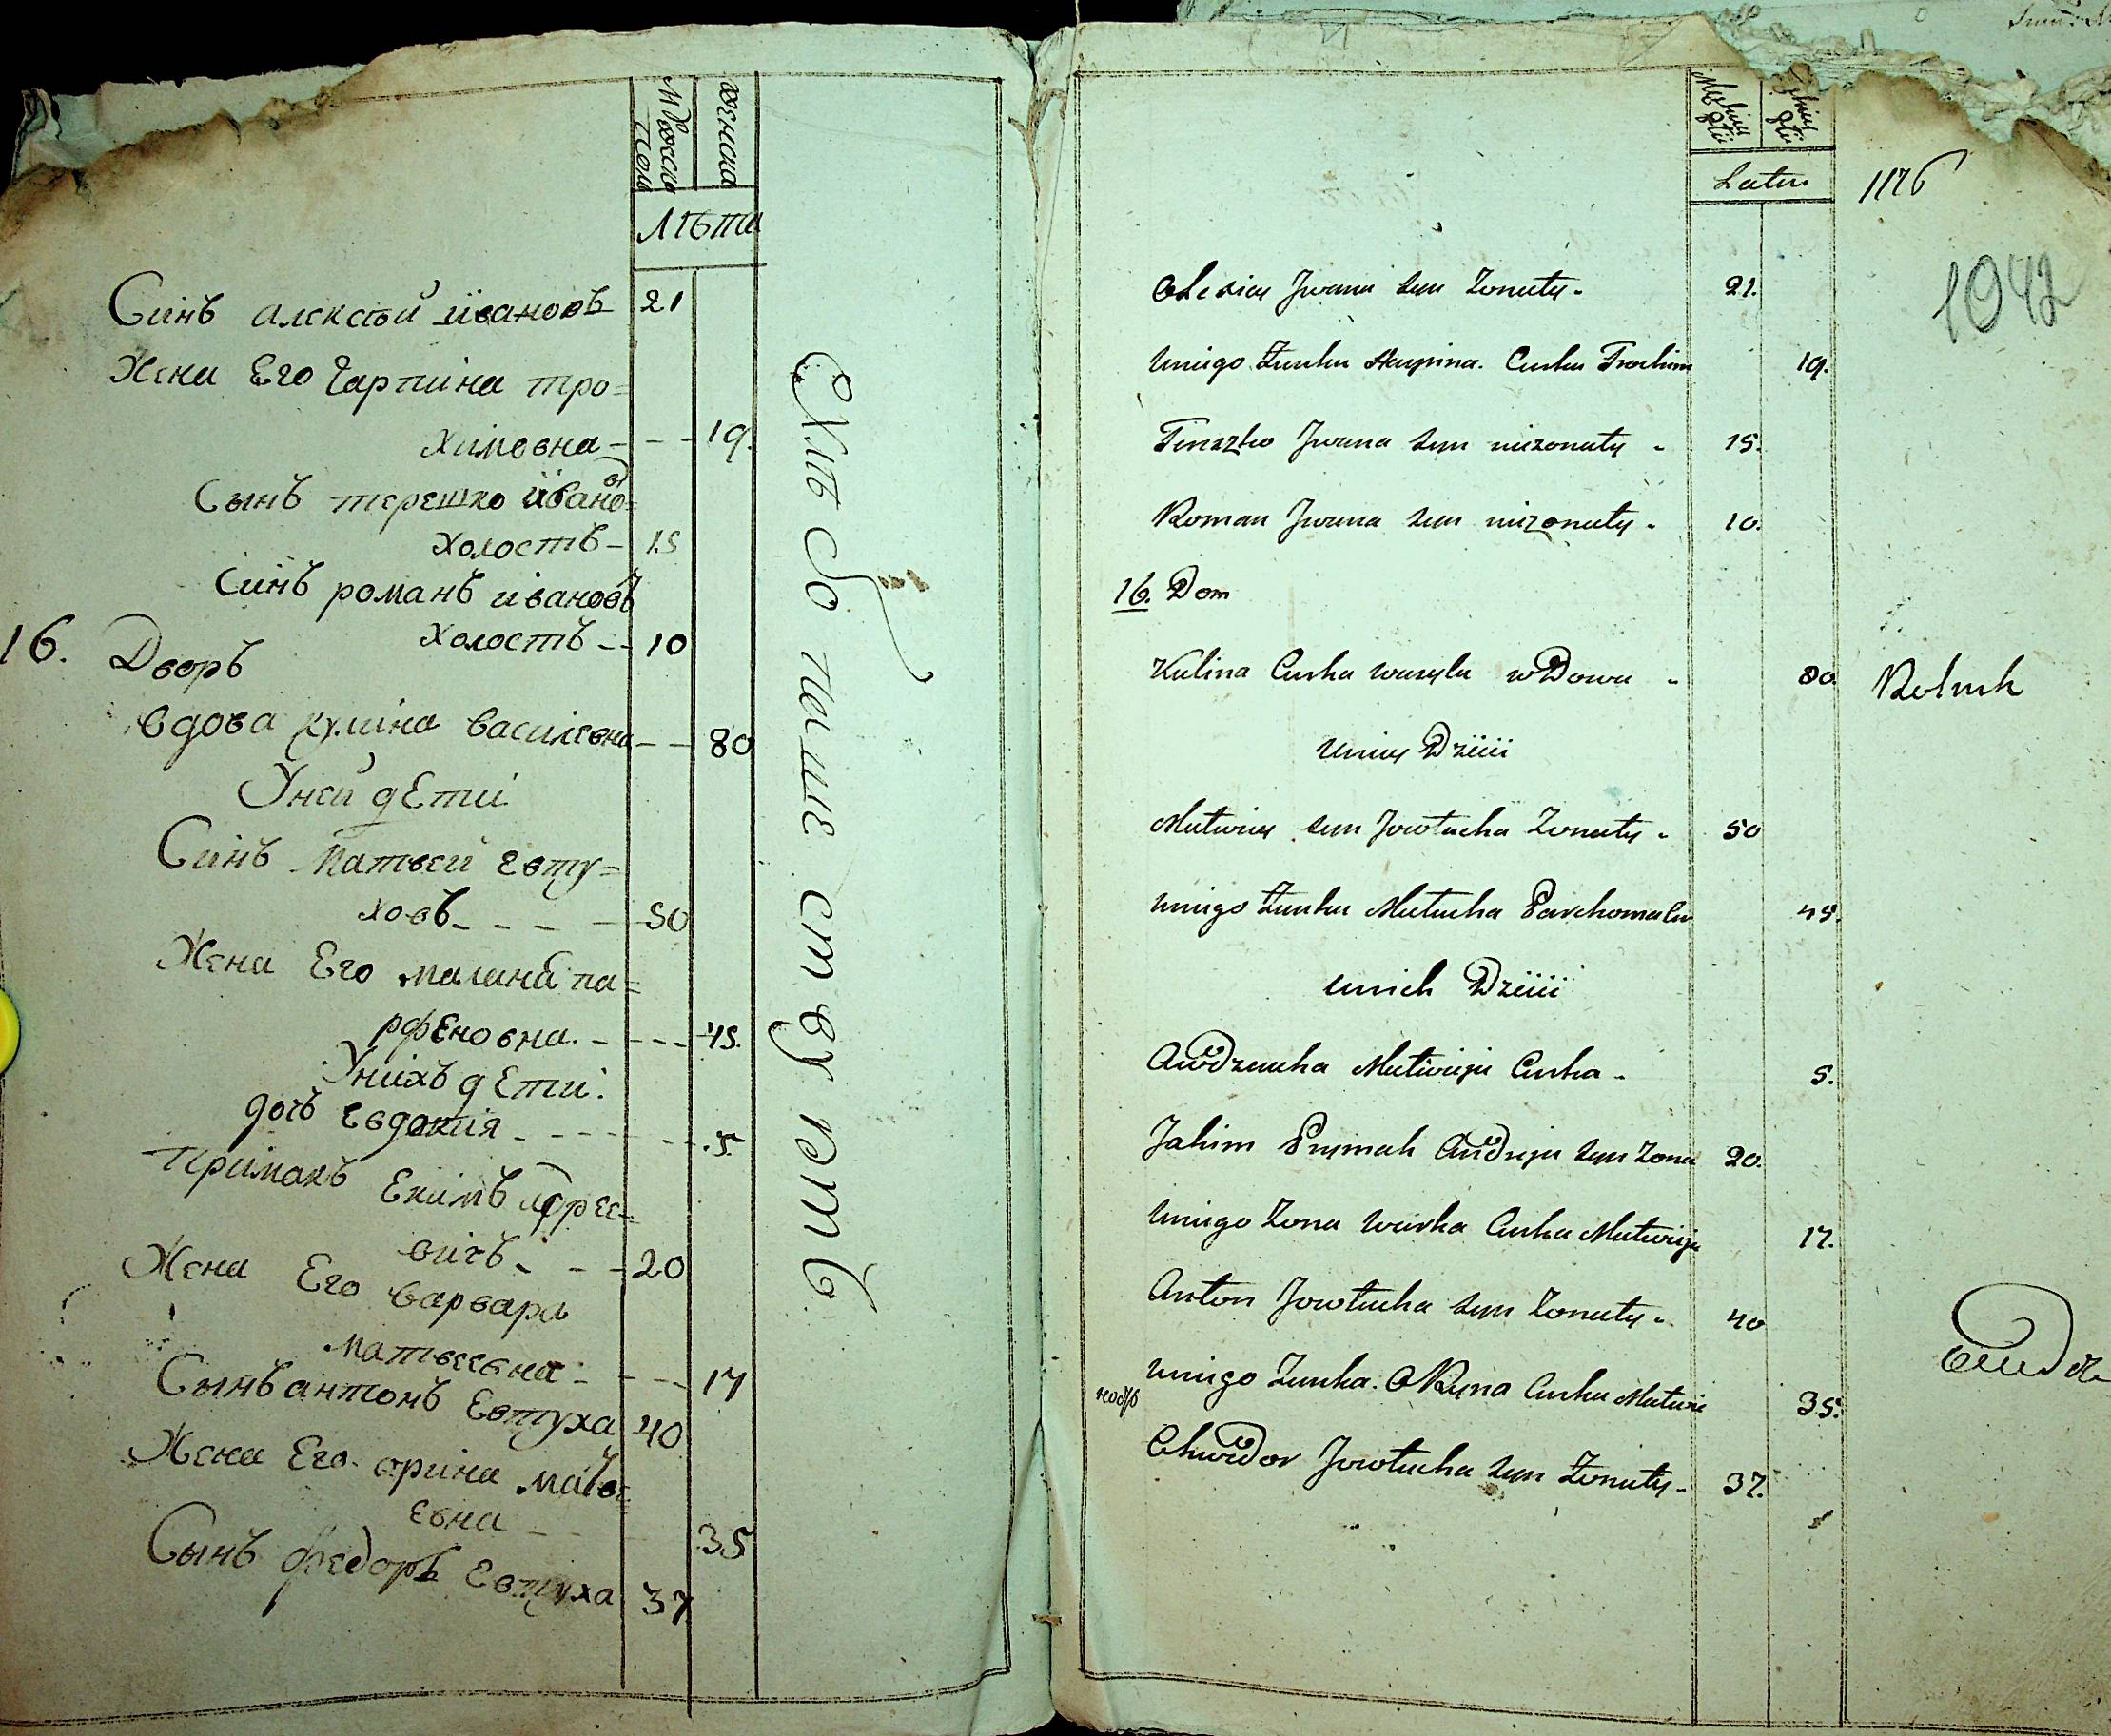 мужеска
полу
женска
лѣта
Синъ алексѣй івановъ 21
Жена Его Гарпина тро=
химовна - - - 19.
Сынъ терешко івано=
въ
холостъ - 15
Синъ романъ івановъ
холостъ - - 10
16. Дворъ
вдова кулина василевна - - 80
Уней дЕти
Синъ Матвей евту=
ховъ - - - - 50
Жена Его малана па=
рфеновна. - - - - 45.
Унихъ дЕти:
дочъ Евдокия - - - - - 5.
примакъ Екимъ
вичъ - - - 20
Жена Его варвара
матвеевна - - - - 17
Сынъ антонъ Евтуха 40
Жена Его орина матве=
евна - - 35
Сынъ федоръ Евтуха 37
Хлѣбопашествуютъ
Męskiey
Płci
Żeńskiey
Płci
Latu
1176
1042
Olexiey Jwana syn Żonaty - 21.
Uniego Żonka Harpina. Curka Trochim 19.
Tereszko Jwana syn nieżonaty - 15.
Roman Jwana syn nieżonaty - 10.
16. Dom
Kulina Curka wasyla wDowa - 80. Rolnik
Uniey Dzieci
Matwiey syn Jowtucha Żonaty - 50
Uniego Żonka Małucha Parchoma Cur 45.
Unich Dzieci
Awdzeucha Matwieja Curka - 5.
Jakim Prymak Andreja syn Żona 20.
Uniego Żona warka Curka Matwieja 17.
Anton Jowtucha syn Żonaty - 40
Uniego Żonka. ORyna Curka Matwie 35.
Chwedor Jowtucha syn Żonaty - 37.